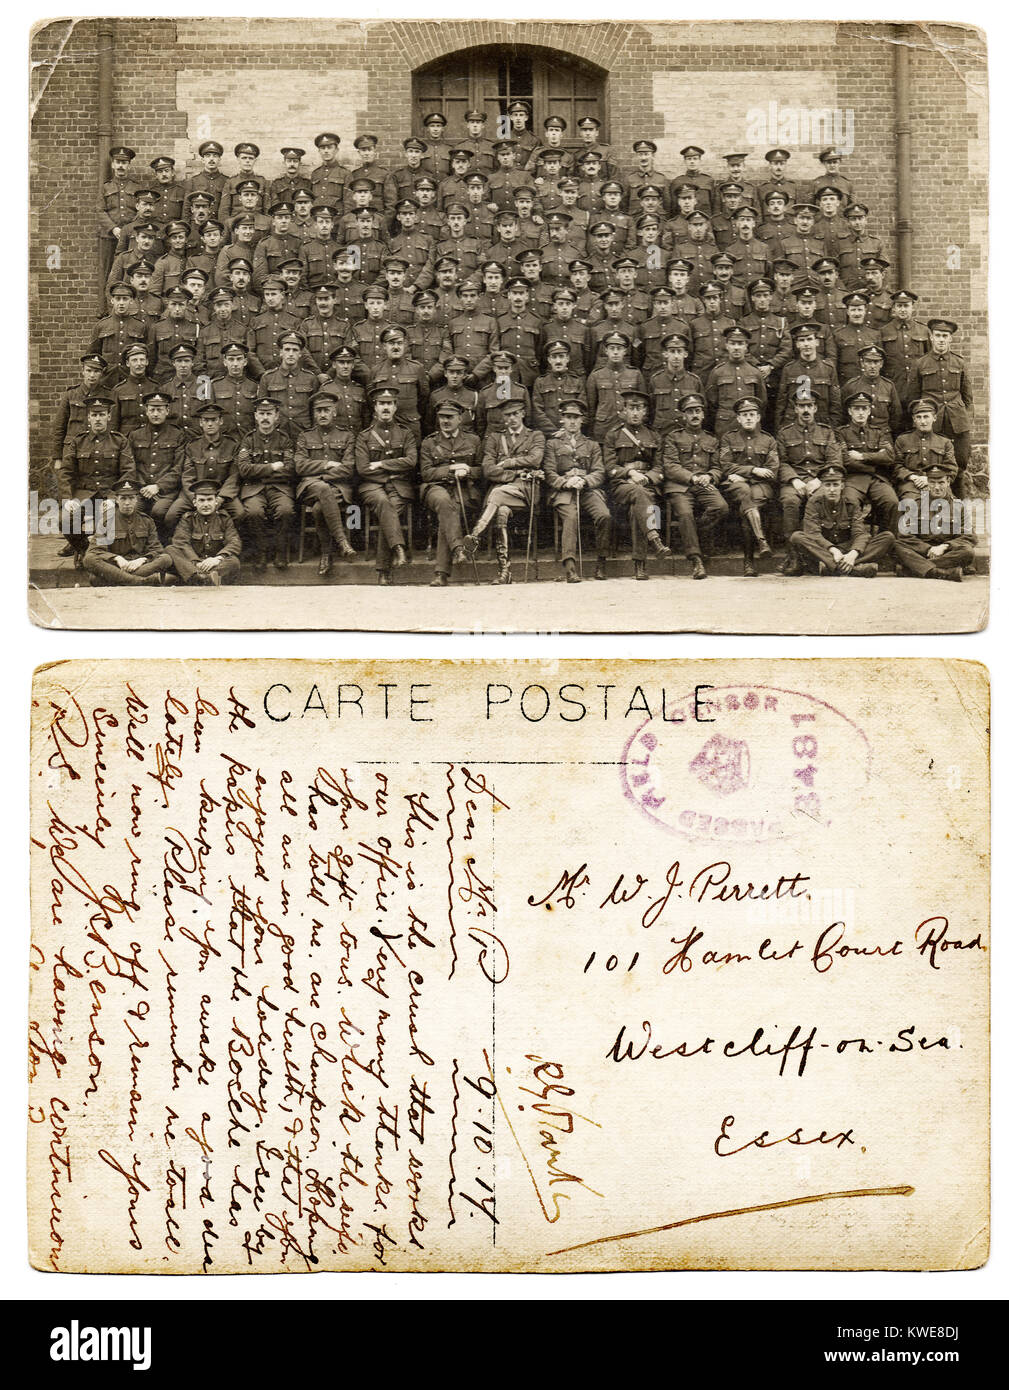 CARTE POSTALE
PASSED FIELD CENSOR
1848
Dear Mr P
9.10.17.
This is the crush that works
our office. Very many thanks for
your gift to us. Which the wife
has told me. are Champion. Hoping
all are in good health, & that you
enjoyed your holiday. I see by
the papers that the Bosche has
been keeping you awake a good deal
lately. Please remember me to all.
Will now ring off & remain yours
Sincerely
Benson.
P.S. We are having continuous
Mr W. J. Perrett.
101 Hamlet Court Road
Westcliff-on-Sea.
Essex.
alamy
alamy
Image ID: KWE8DJ
www.alamy.com